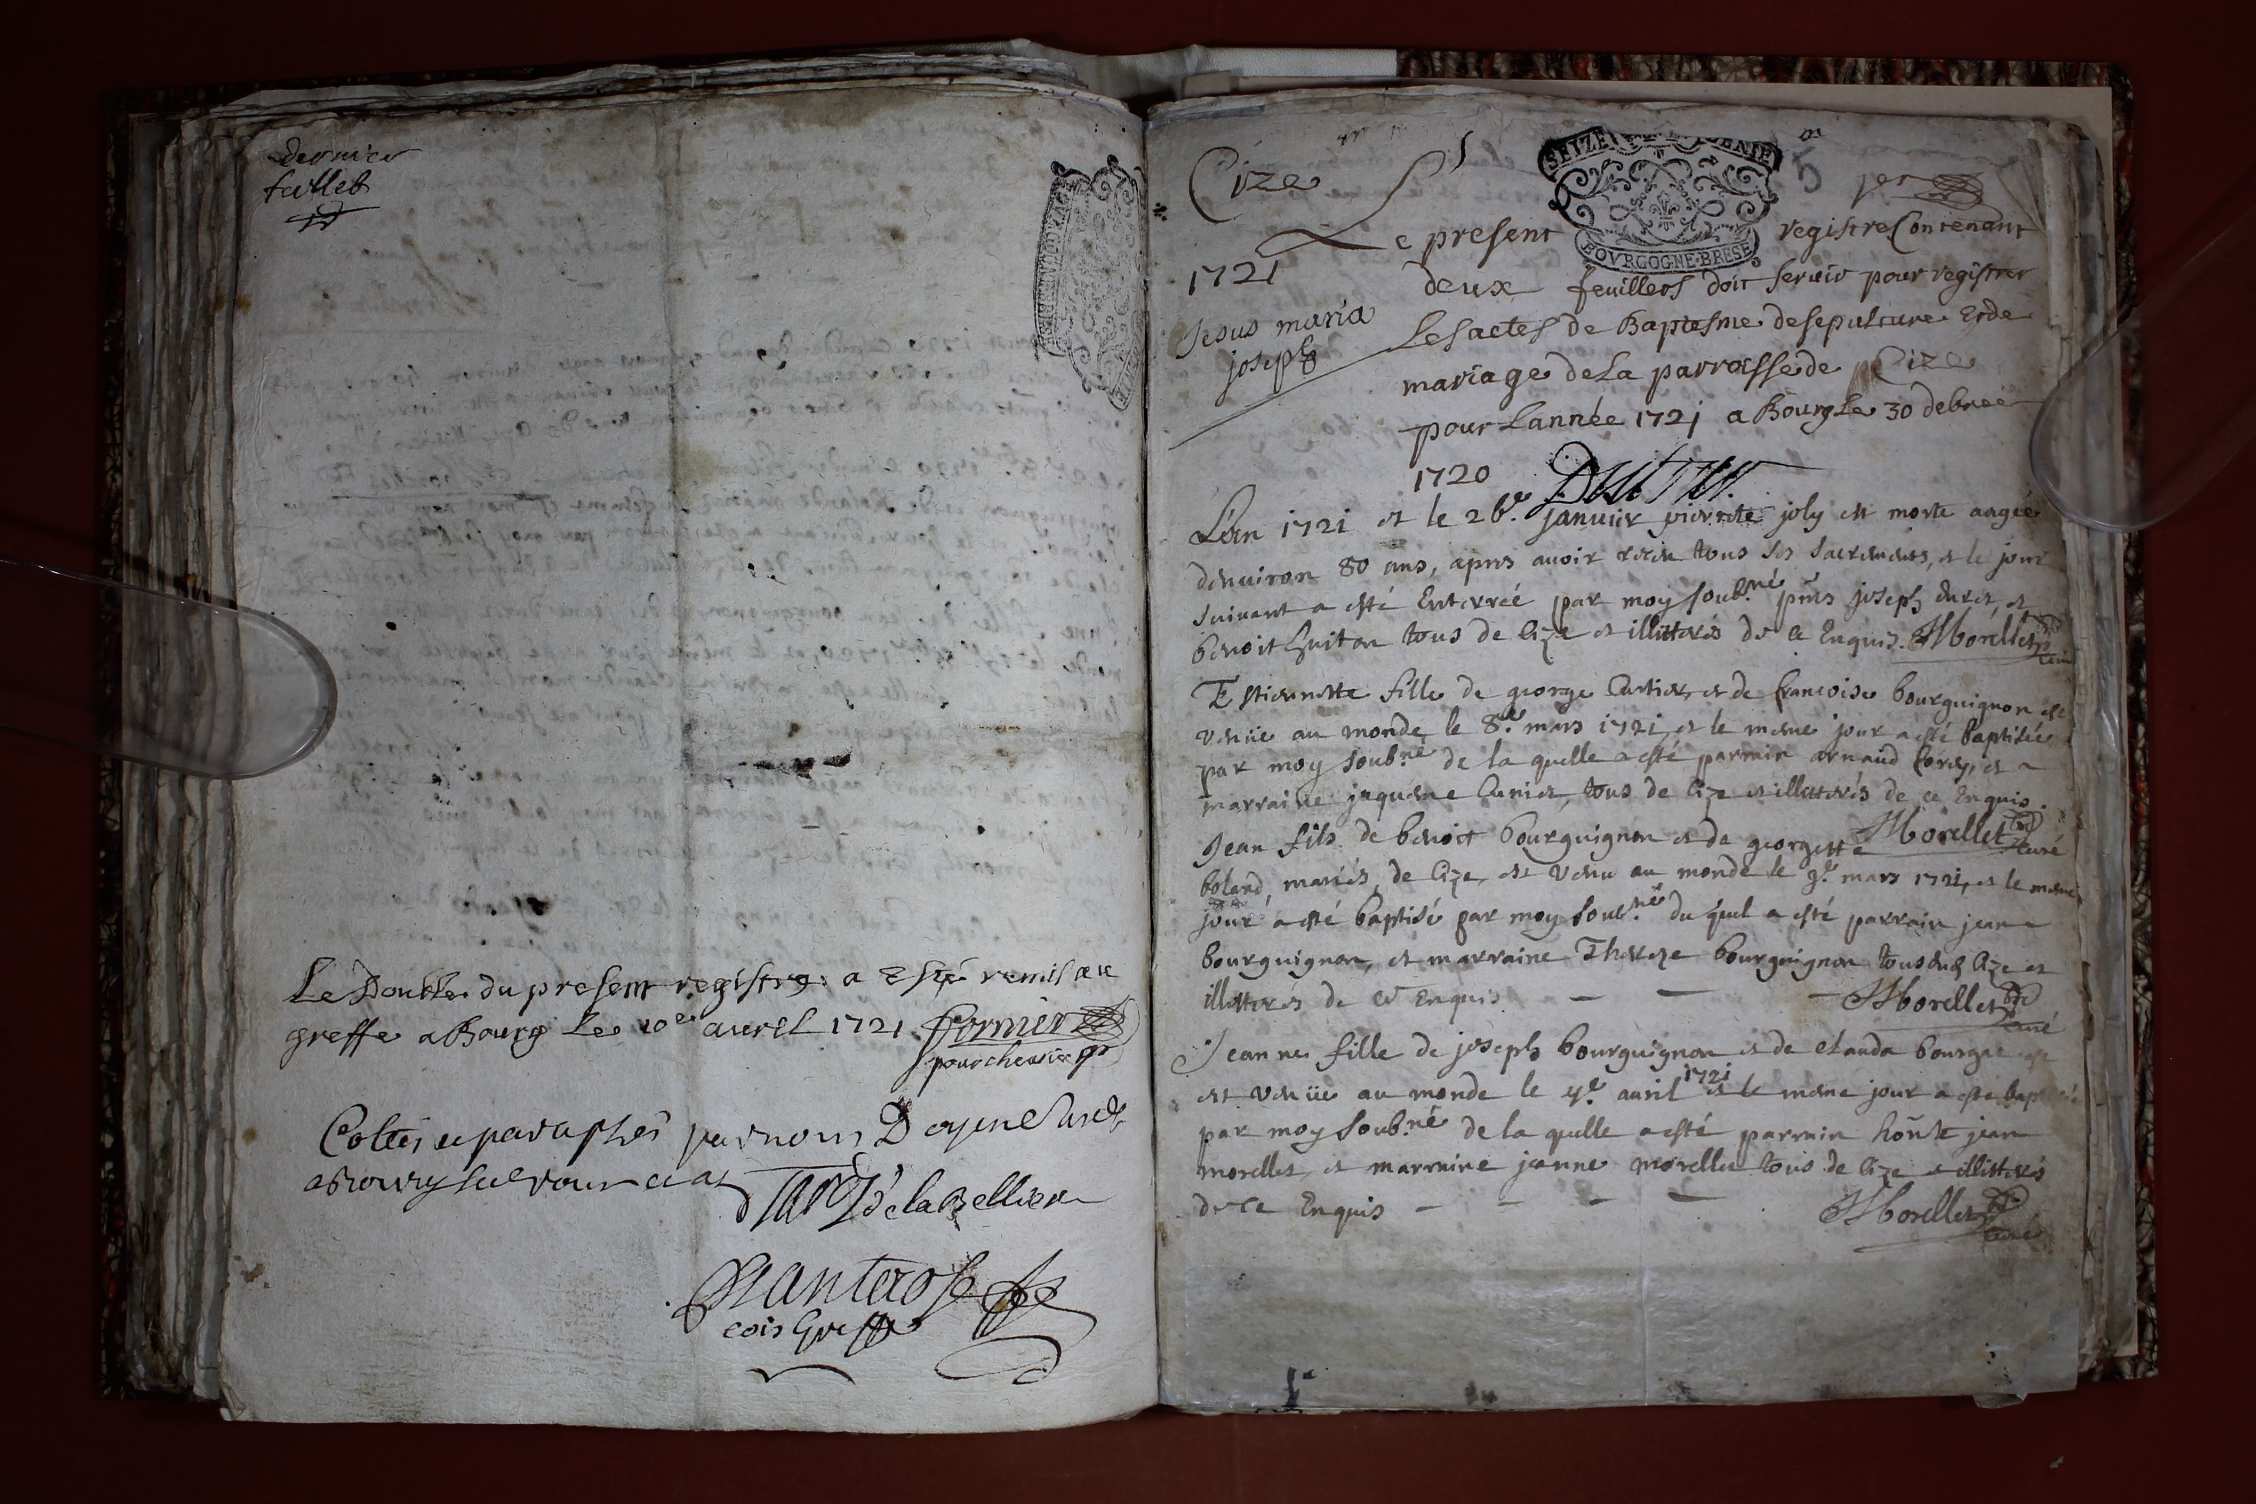 dernier
feillet
Le Double du present registre a Esté remis au
greffe a Bourg Le 10e avrel 1721 fornier
pour chevrier gr
Cottés et paraphés par nous Doyen
a Bourg
de la Bellier
Chantelose
cois Greff
Cize
1721
Jesus maria
joseph
SEIZE
BOVRGOGNE·BRESSE
5
1er
Le present registre Contenant
deux feuillets doit servir pour registrer
Les actes de Baptesme de sepulture Et de
mariage de La parroisse de Cize
pour Lannée 1721 a Bourg Le 30 debree
1720
L'an 1721 et le 26e janvier pierrette joly est morte aagée
d'environ 80 ans, apres avoir receu tous ses sacremens, et le jour
suivant a esté Enterrée par moy soub.né pñts joseph duret, et
benoit Guiton tous de Cize et illitterés de ce Enquis. Morellet
curé
Estiennette fille de george Cartier et de francoise bourguignon est
venüe au monde le 8e mars 1721, et le meme jour a esté baptisée
par moy soub.né de la quelle a esté parrain arnaud et
marraine jaqueme Cunier, tous de Cize et illitterés de ce Enquis.
Morellet curé
Jean fils de benoit bourguignon et de georgette
bolard mariés de Cize, est venu au monde le 9e mars 1721, et le meme
jour a esté baptisé par moy soub.né du quel a esté parrain jean
bourguignon, et marraine Thereze bourguignon tous de Cize et
illitterés de ce Enquis — — — Morellet
curé
Jeanne fille de joseph bourguignon et de clauda
est venüe au monde le 4e avril 1721 et le meme jour a esté baptisée
par moy soub.né de la quelle a esté parrain hoñte jean
morellet, et marraine jeanne morellet tous de Cize et illitterés
de ce Enquis — — — —
Morellet
curé